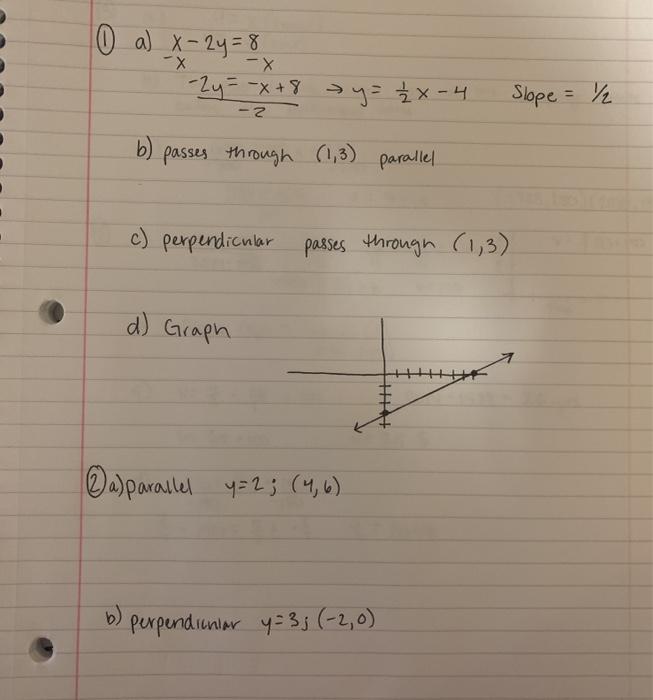 ① a) x - 2y = 8
-x -x
-2y = -x + 8 → y = 1/2 x - 4 Slope = 1/2
-2
b) passes through (1,3) parallel
c) perpendicular passes through (1,3)
d) Graph
② a) parallel y=2; (4,6)
b) perpendicular y=3; (-2,0)